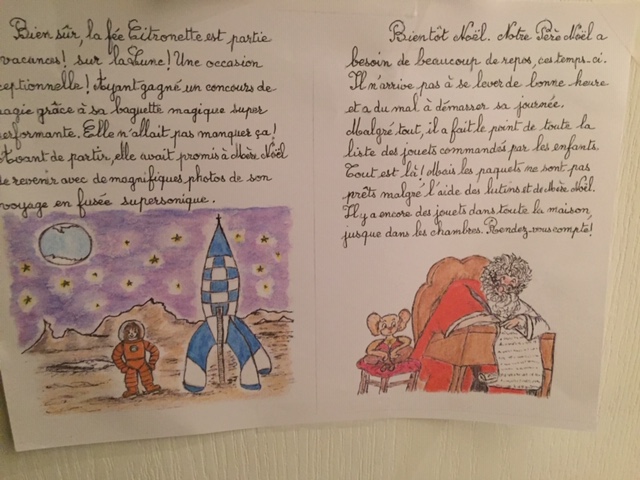 Bien sûr, la fée Citronette est partie
vacances! sur la Lune! Une occasion
ceptionnelle! Ayant gagné un concours de
magie grâce à sa baguette magique super
performante. Elle n'allait pas manquer ça!
Avant de partir, elle avait promis à Mère Noël
de revenir avec de magnifiques photos de son
voyage en fusée supersonique.
Bientôt Noël. Notre Père Noël a
besoin de beaucoup de repos, ces temps-ci.
Il n'arrive pas à se lever de bonne heure
et a du mal à démasser sa journée.
Malgré tout, il a fait le point de toute la
liste des jouets commandés par les enfants.
Tout est là! Mais les paquets ne sont pas
prêts malgré l'aide des lutins et de Mère Noël.
Il y a encore des jouets dans toute la maison,
jusque dans les chambres. Rendez-vous compte!